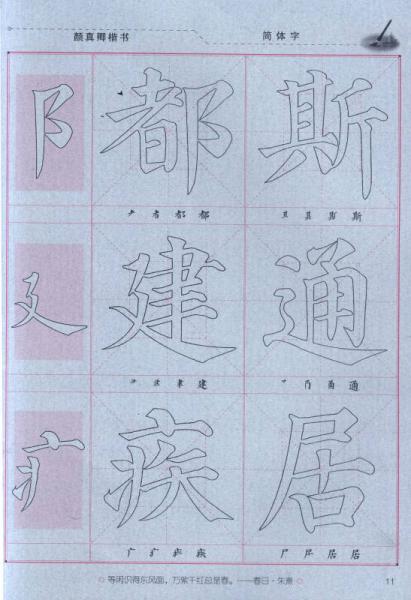 颜真卿楷书 简体字
阝 都 斯
者 都 都 其 斯
廴 建 通
建 甬 通
疒 疾 居
广 疒 疾 尸 居 居
等闲识得东风面，万紫千红总是春。——春日·朱熹
11